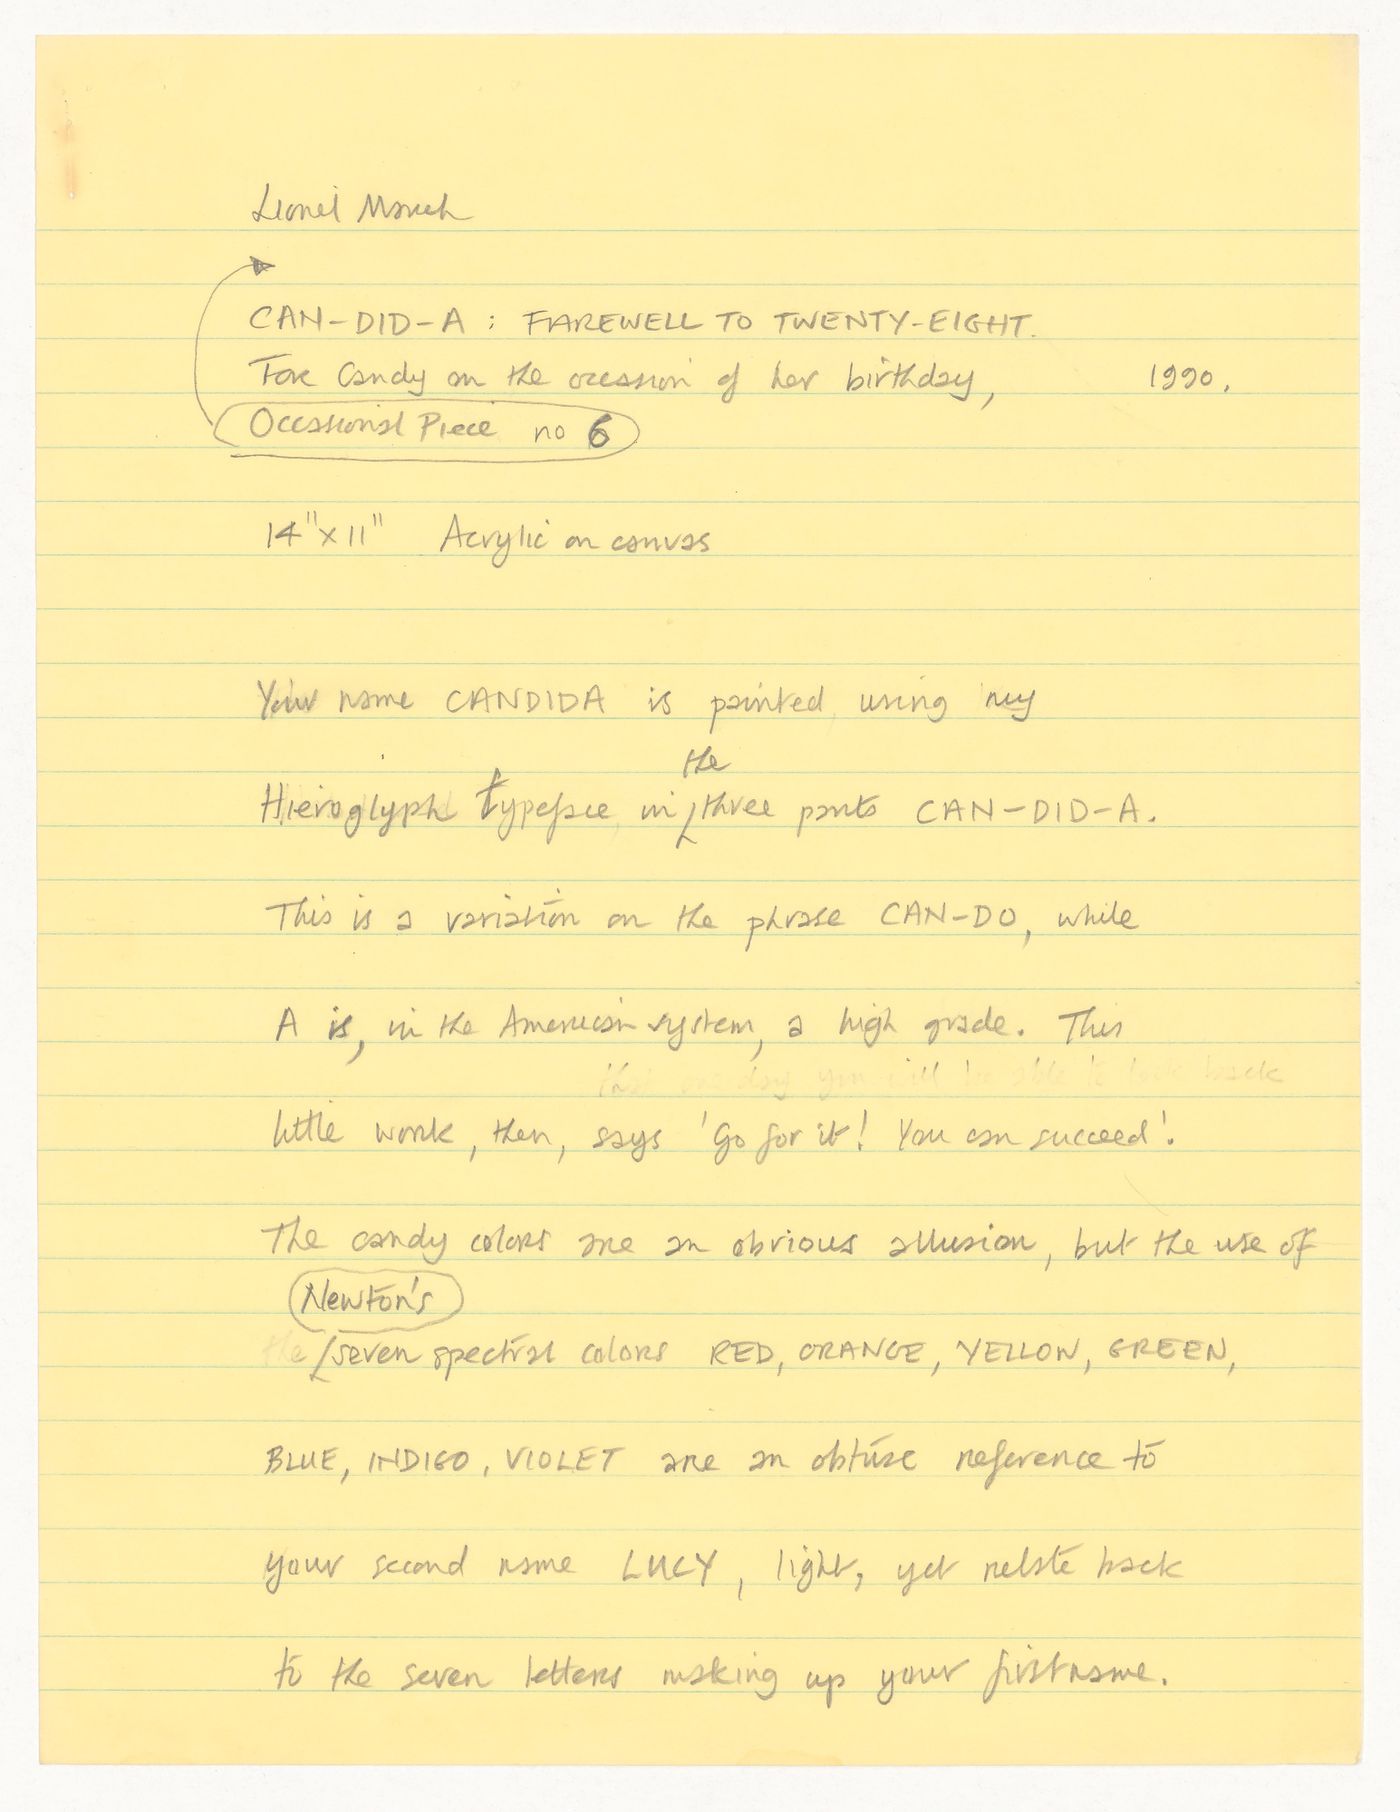 Lionel March
CAN-DID-A : FAREWELL TO TWENTY-EIGHT.
For Candy on the occasion of her birthday, 1990.
Occasional Piece no 6
14" x 11" Acrylic on canvas
Your name CANDIDA is painted using my
the
Hieroglyph typeface in three parts CAN-DID-A.
This is a variation on the phrase CAN-DO, while
A is, in the American system, a high grade. This
that one day you will be able to look back
little work, then, says 'Go for it! You can succeed'.
The candy colors are an obvious allusion, but the use of
Newton's
the seven spectral colors RED, ORANGE, YELLOW, GREEN,
BLUE, INDIGO, VIOLET are an obtuse reference to
your second name LUCY, light, yet relate back
to the seven letters making up your first name.